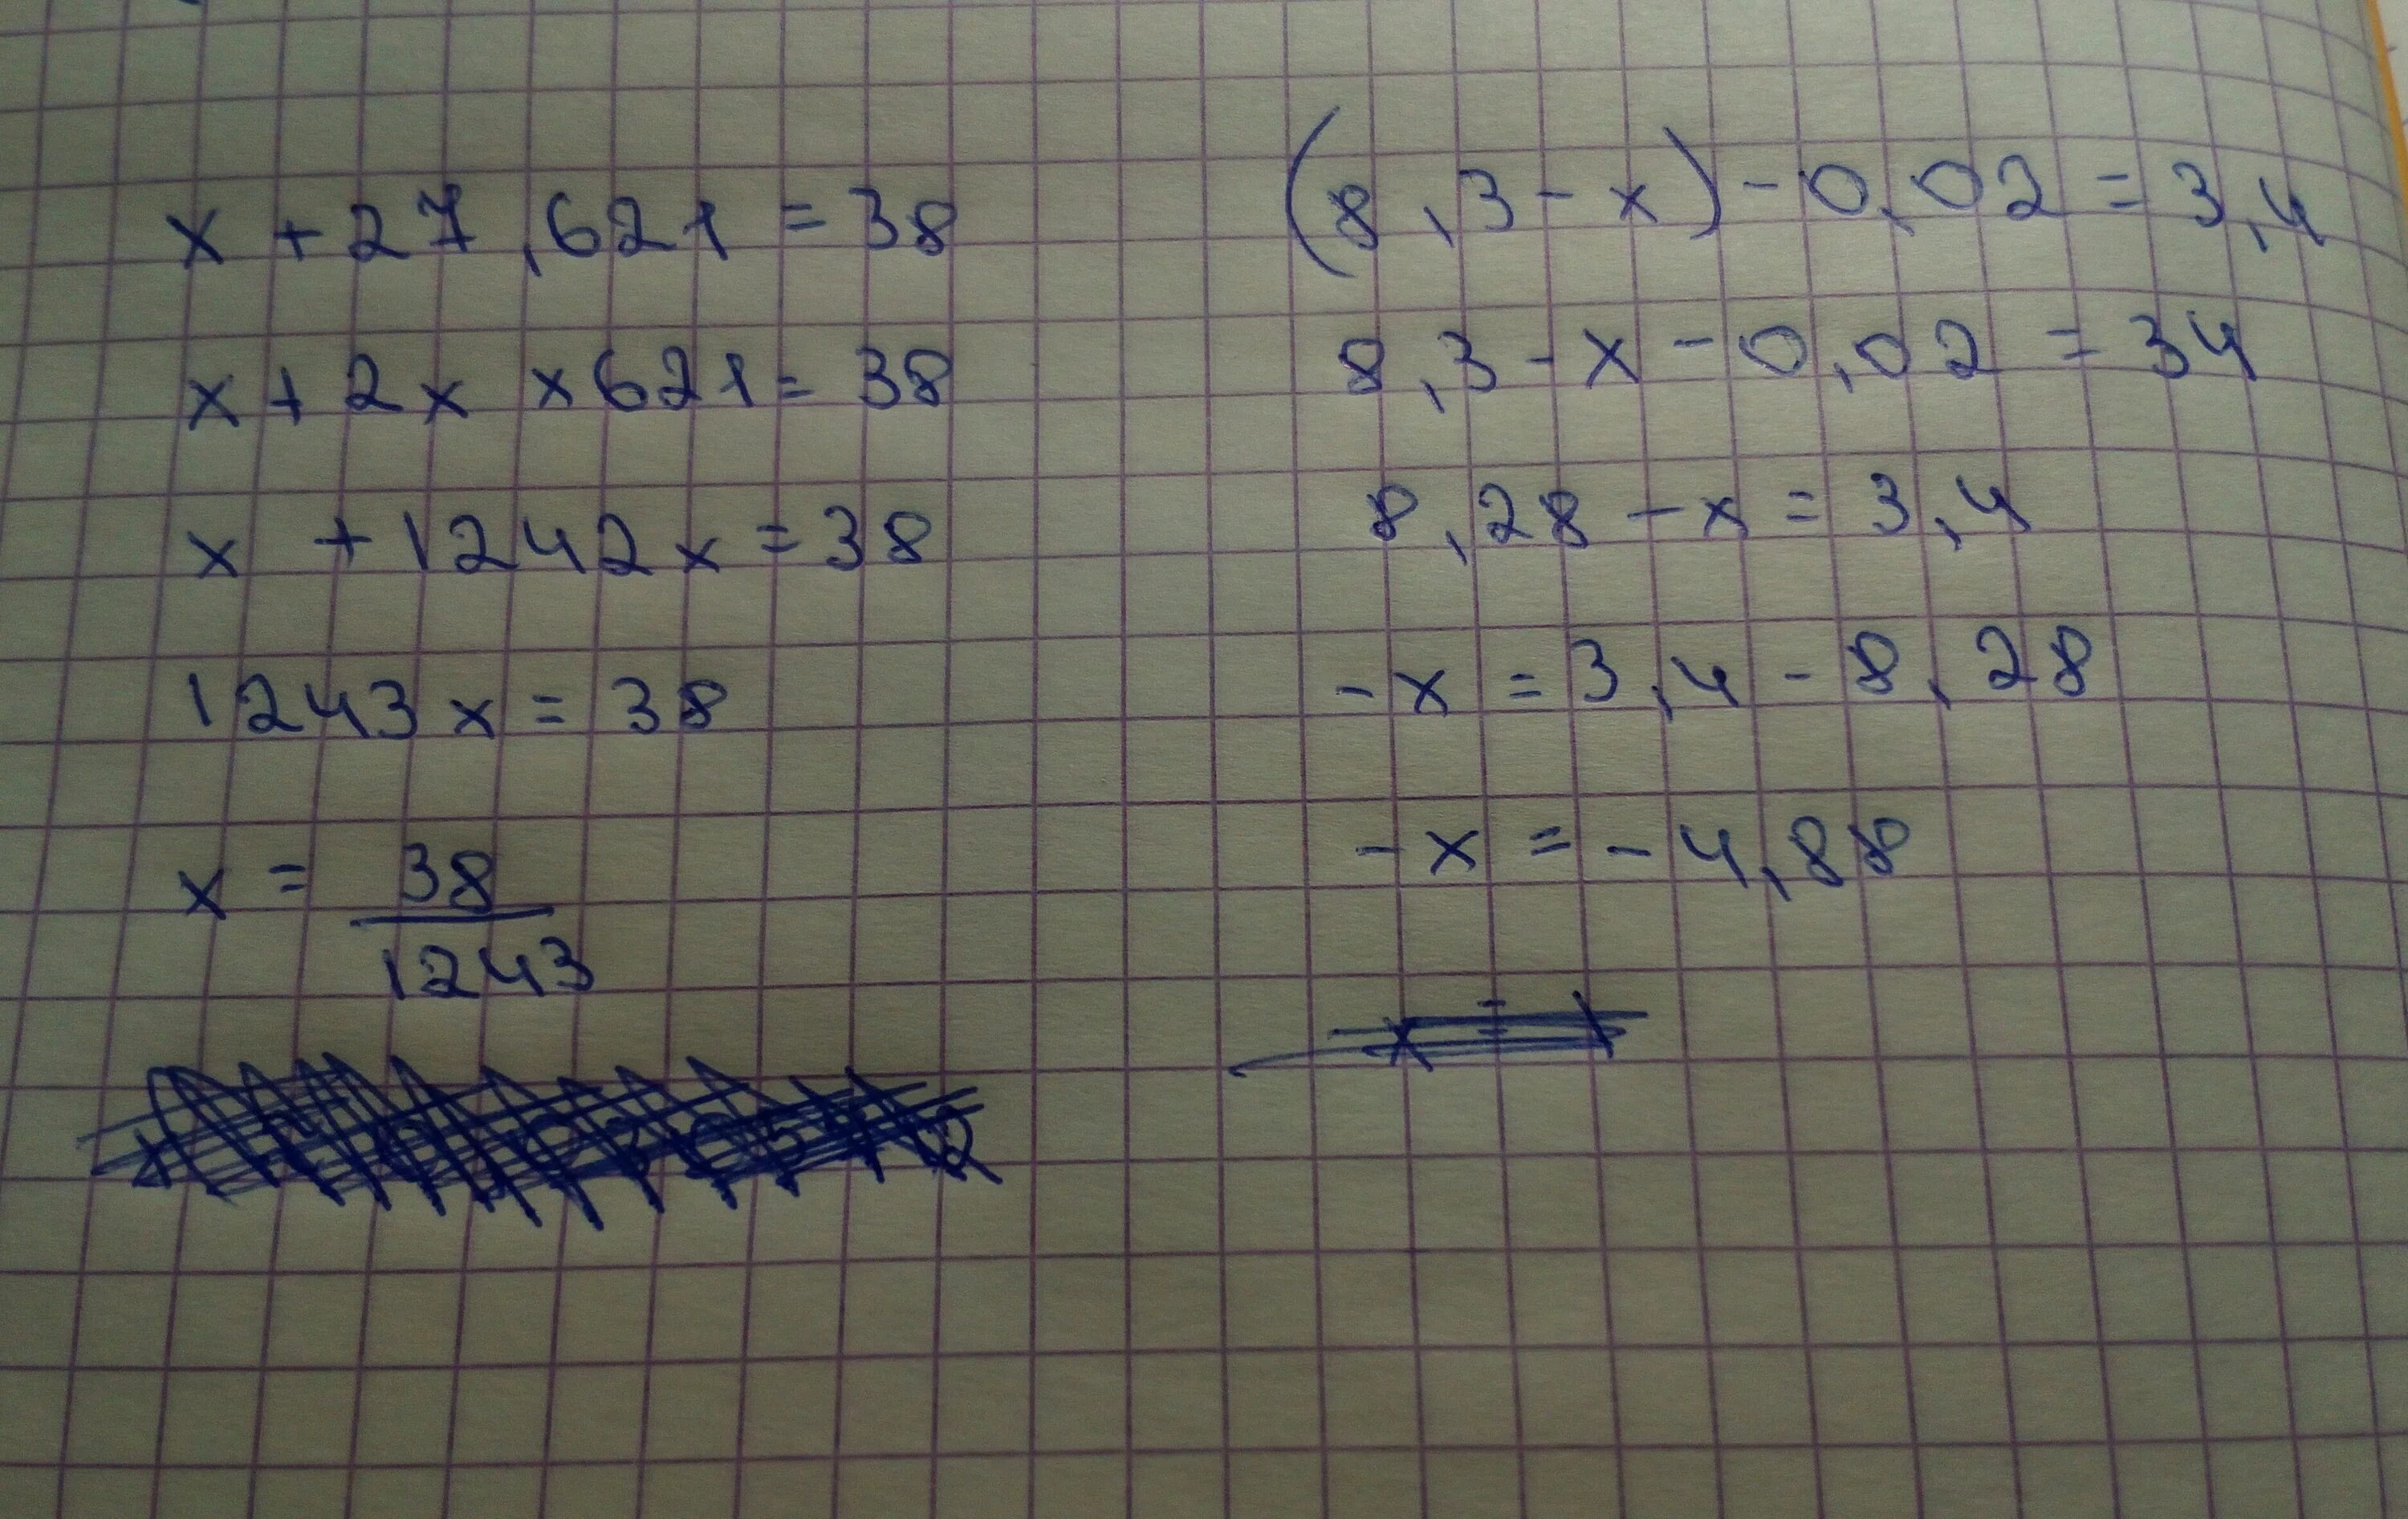 x + 27,621 = 38
x + 2x x621 = 38
x + 1242x = 38
1243x = 38
x = 38
1243
(8,3 - x) - 0,02 = 3,4
8,3 - x - 0,02 = 34
8,28 - x = 3,4
-x = 3,4 - 8,28
-x = -4,88